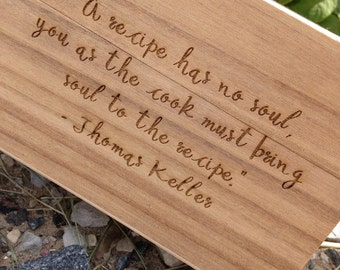 A recipe has no soul,
you as the cook must bring
soul to the recipe."
- Thomas Keller